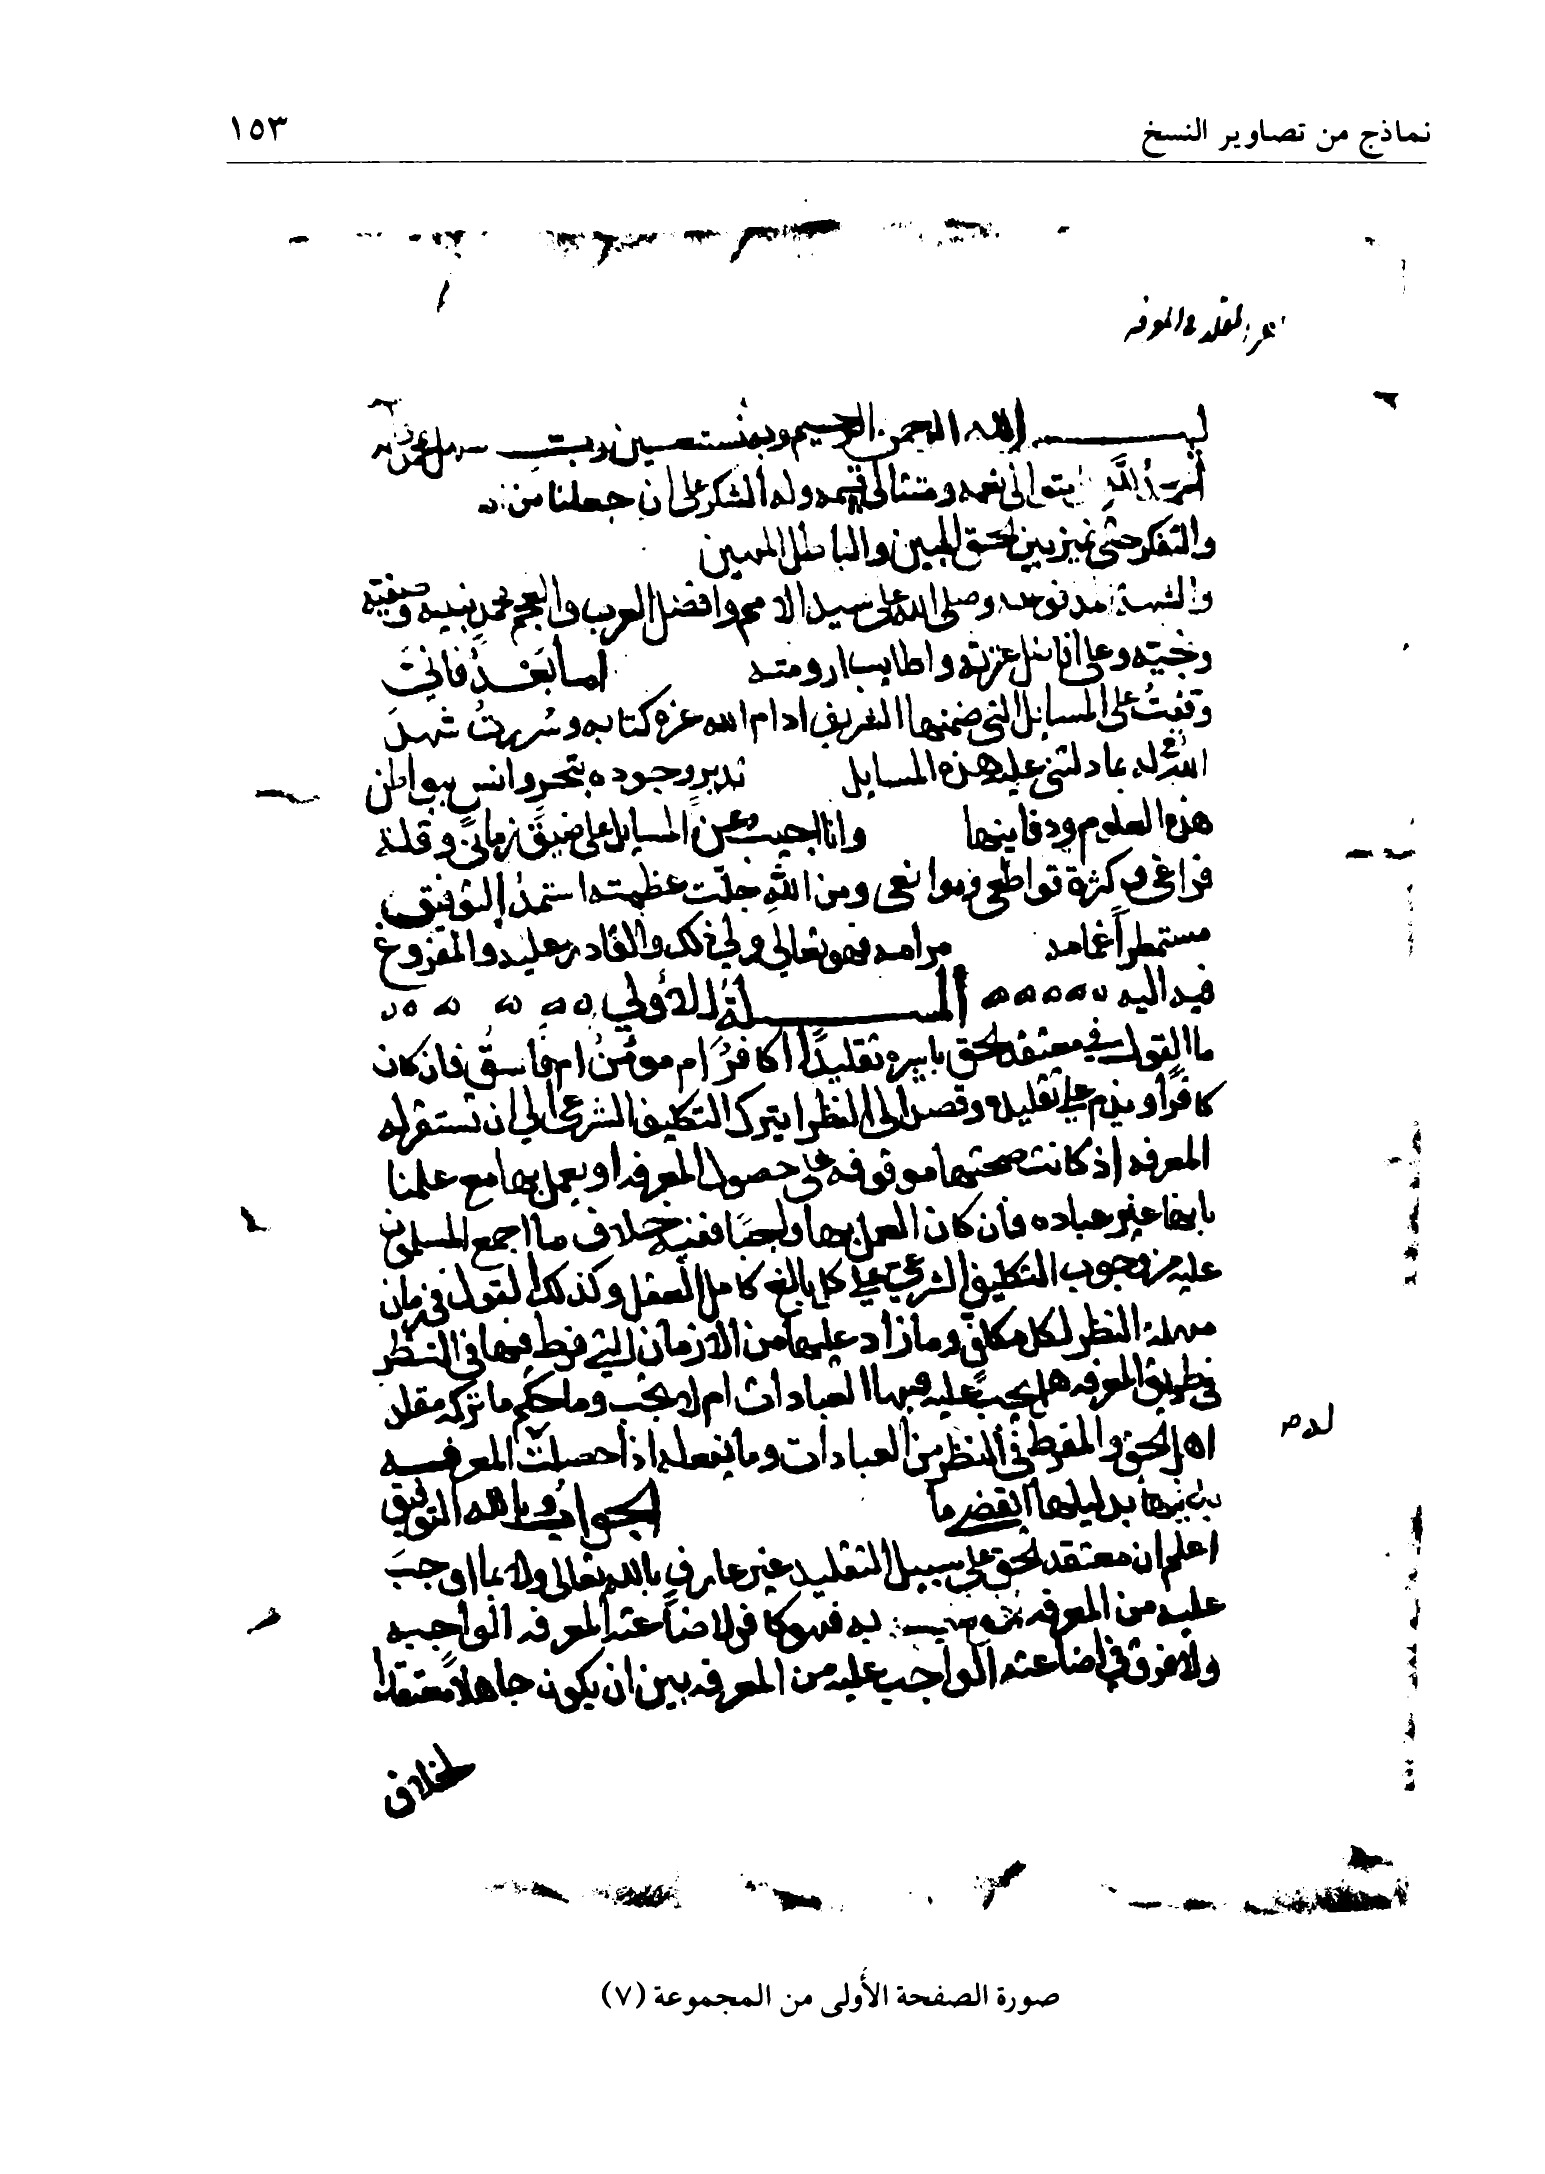 نماذج من تصاوير النسخ ١٥٣
المقلد في المعرفه
بسم الله الرحمن الرحيم وبه نستعين
الحمد لله بتوالي نعمه وتتالي قسمه وله الشكر على ان جعلنا من
والتفكر حتى نميز بين الحق المبين والباطل المهين
والشبهة وصلى الله على سيد الامم وافضل العرب والعجم محمد نبيه وصفيه
ونجيته وعلى اناسل عزته واطايب ارومته اما بعد فاني
وقفت على المسايل التي ضمنها الشريف ادام الله عزه كتابه وسررت شهد
الله له بما دلتني عليه هذه المسايل تدبر وجوده بتحر وانس ببواطن
هذه العلوم ودفاينها وانا اجيب عن المسايل على ضيق زماني وقلة
فراغي وكثرة قواطعي وموانعي ومن الله جلت عظمته استمد التوفيق
مستمطرا غمامه مرامه فهو تعالى ولي ذلك والقادر عليه والمفزوع
فيه اليه المسلة الأولي
ما القول في معتقد الحق باسره تقليدا اكافر ام مومن ام فاسق فان كان
كافرا ويذم على تقليده وقصد الى النظر ايترك التكليف الشرعي الي ان تستقر له
المعرفه اذ كانت صحتها موقوفه على حصول المعرفه او يعمل بها مع علمنا
بانها غير عباده فان كان العمل بها واجبا ففيه خلاف ما اجمع المسلمون
عليه من وجوب التكليف الشرعي على كل بالغ كامل العقل وكذلك القول في زمان
مهلة النظر لكل مكلف وما زاد عليها من الازمان التي فرط فيها في النظر
في طريق المعرفه هل يجب عليه فيها العبادات ام لا يجب وما حكم ما تركه مقلد
اهل الحق والمفرط في النظر من العبادات وما يفعله اذا حصلت المعرفه
بدليلها ايقضي ما الجواب وبالله التوفيق
اعلم ان معتقد الحق على سبيل التقليد غير عارف بالله تعالى ولا بما اوجب
عليه من المعرفه به فهو كافر لاضاعته المعرفه الواجبه
ولا فرق في اضاعته الواجب عليه من المعرفه بين ان يكون جاهلا معتقدا
لخلاف
صورة الصفحة الأولى من المجموعة (٧)